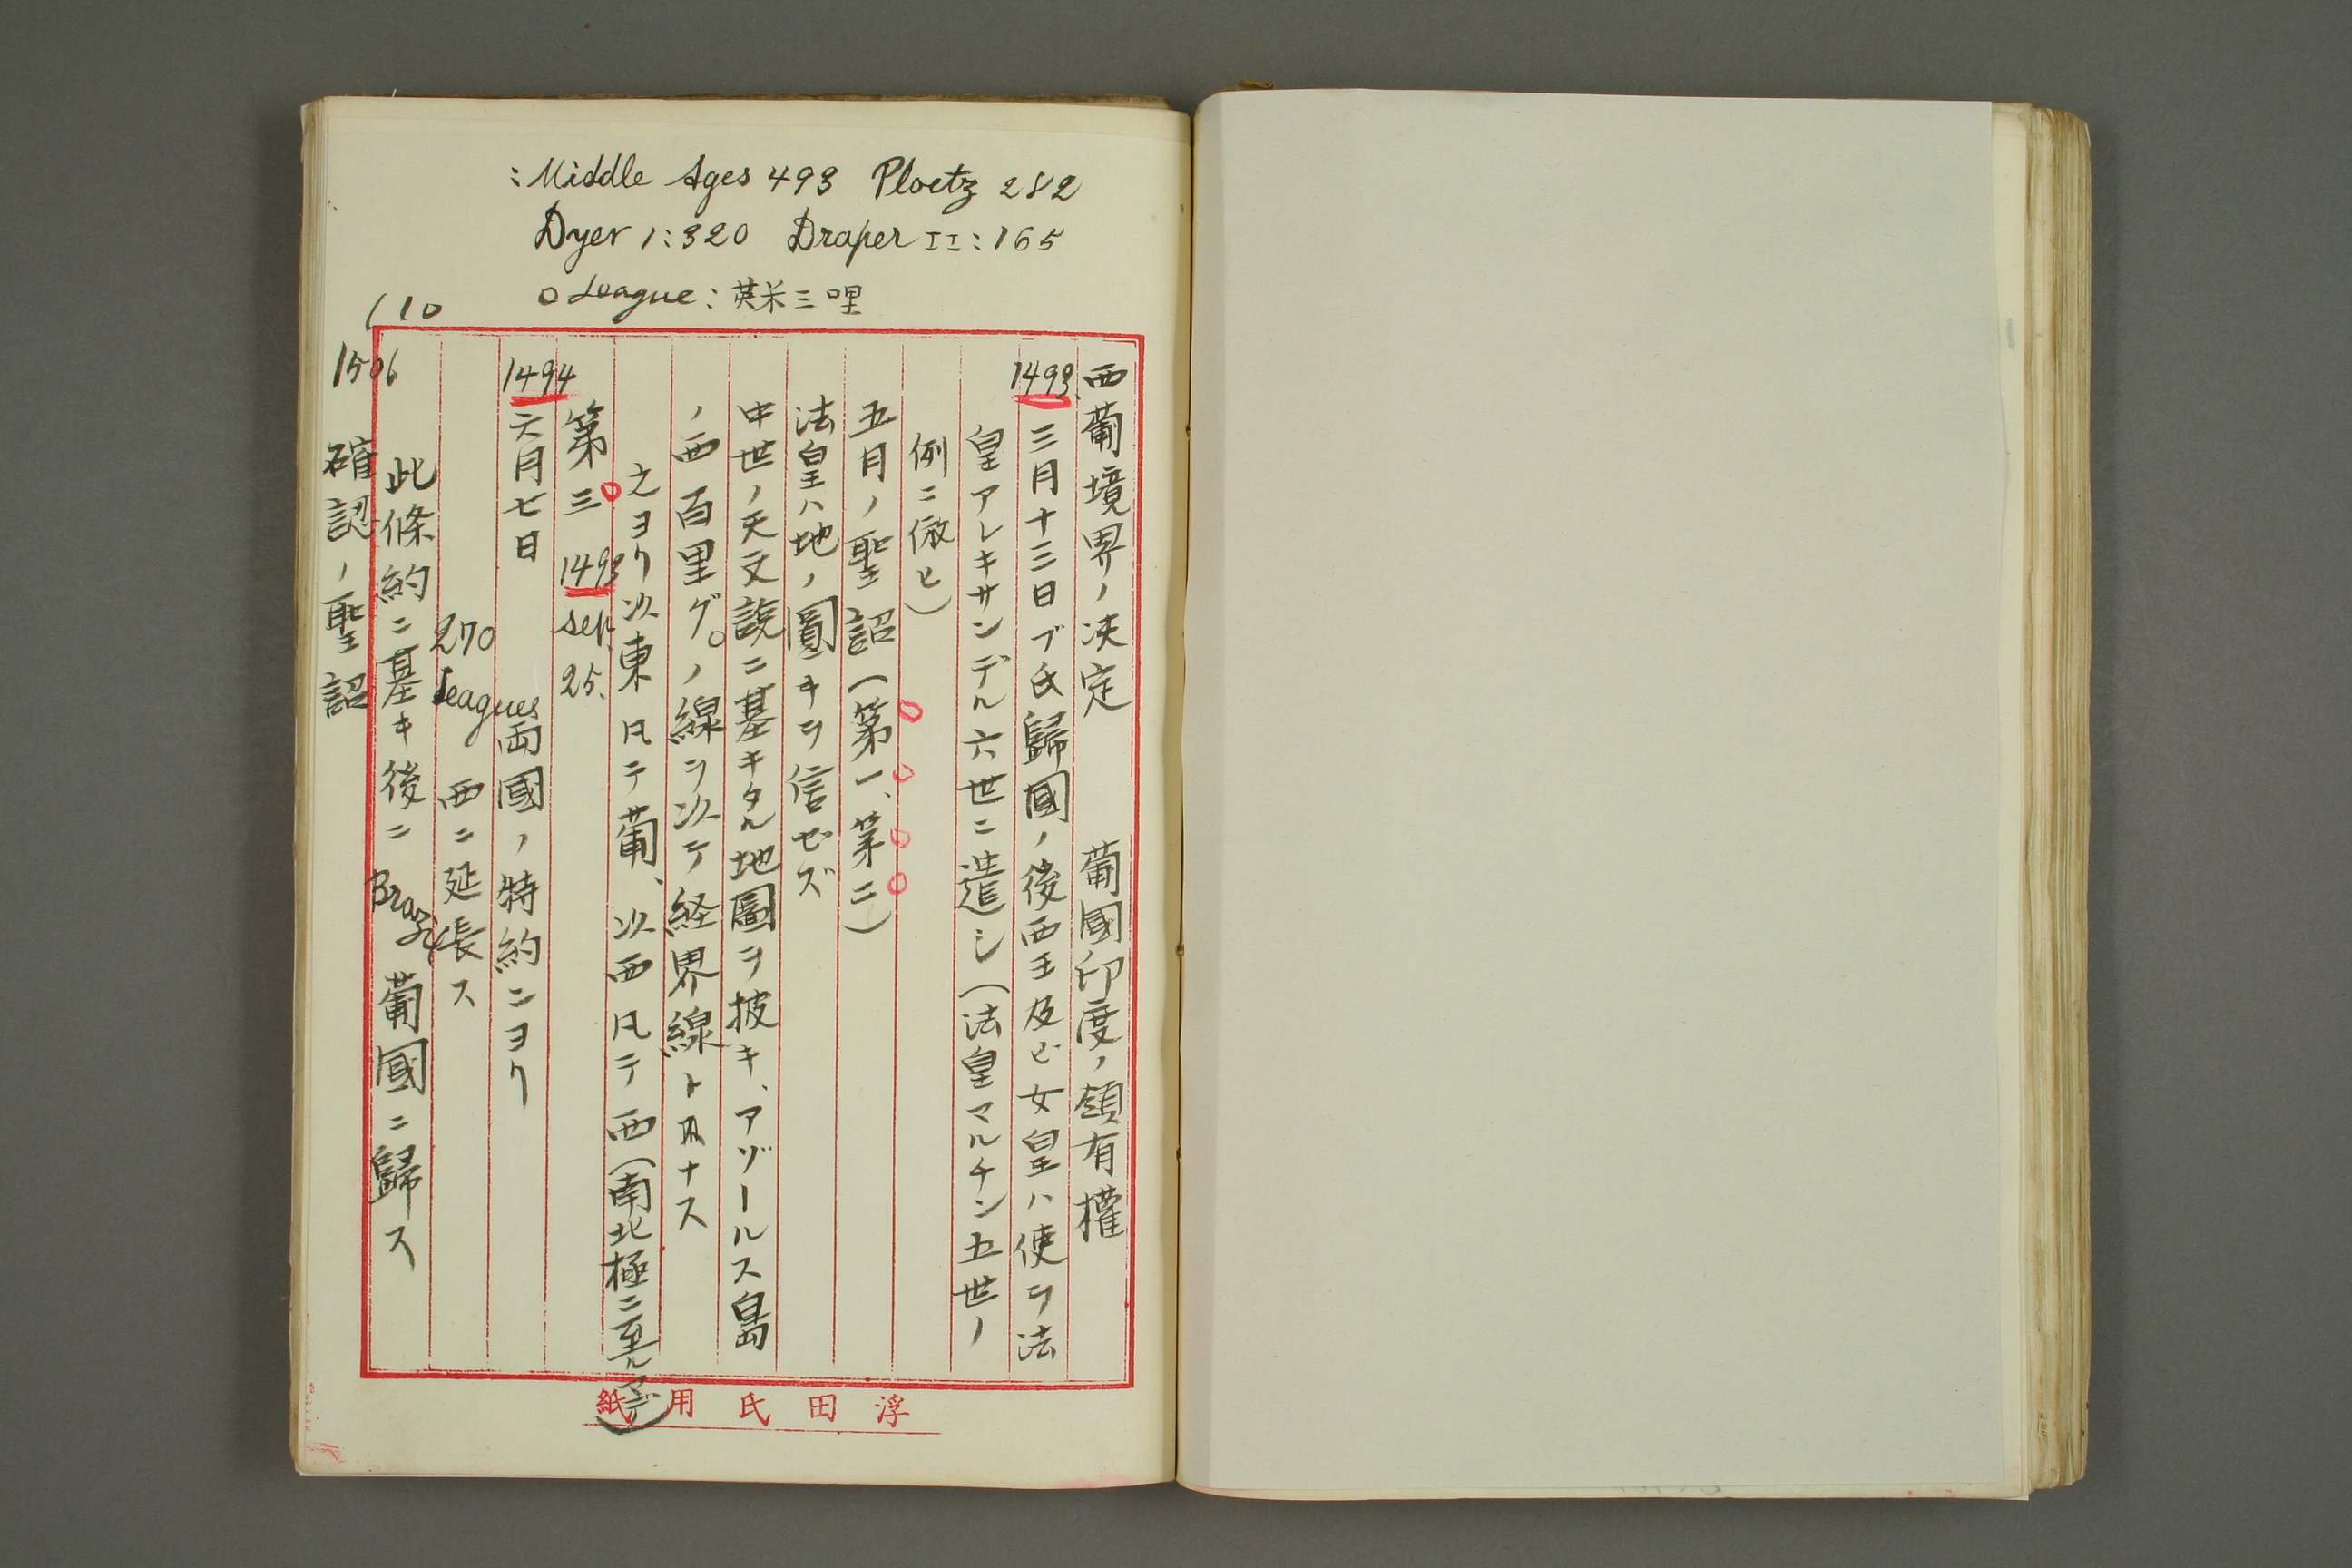 : Middle Ages 493 Ploetz 282
Dyer 1:320 Draper II:165
○ League: 英米三哩
西葡境界ノ决定 葡國印度ノ領有權
1493 三月十三日ブ氏歸國ノ後西王及ビ女皇ハ使ヲ法
皇アレキサンデル六世ニ遣シ(法皇マルチン五世ノ
例ニ倣ヒ)
五月ノ聖詔(第一、第二)
法皇ハ地ノ圓キヲ信ゼズ
中世ノ天文説ニ基キタル地圖ヲ披キ、アゾールス島
ノ西百里グ。ノ線ヲ以テ経界線トナス
之ヨリ以東凡テ葡、以西凡テ西(南北極ニ至ルマデ)
第三 1493 Sep. 25.
1494 六月七日 両國ノ特約ニヨリ
270 Leagues 西ニ延長ス
此條約ニ基キ後ニ Brazil 葡國ニ歸ス
110
1506 確認ノ聖詔
浮田氏用紙